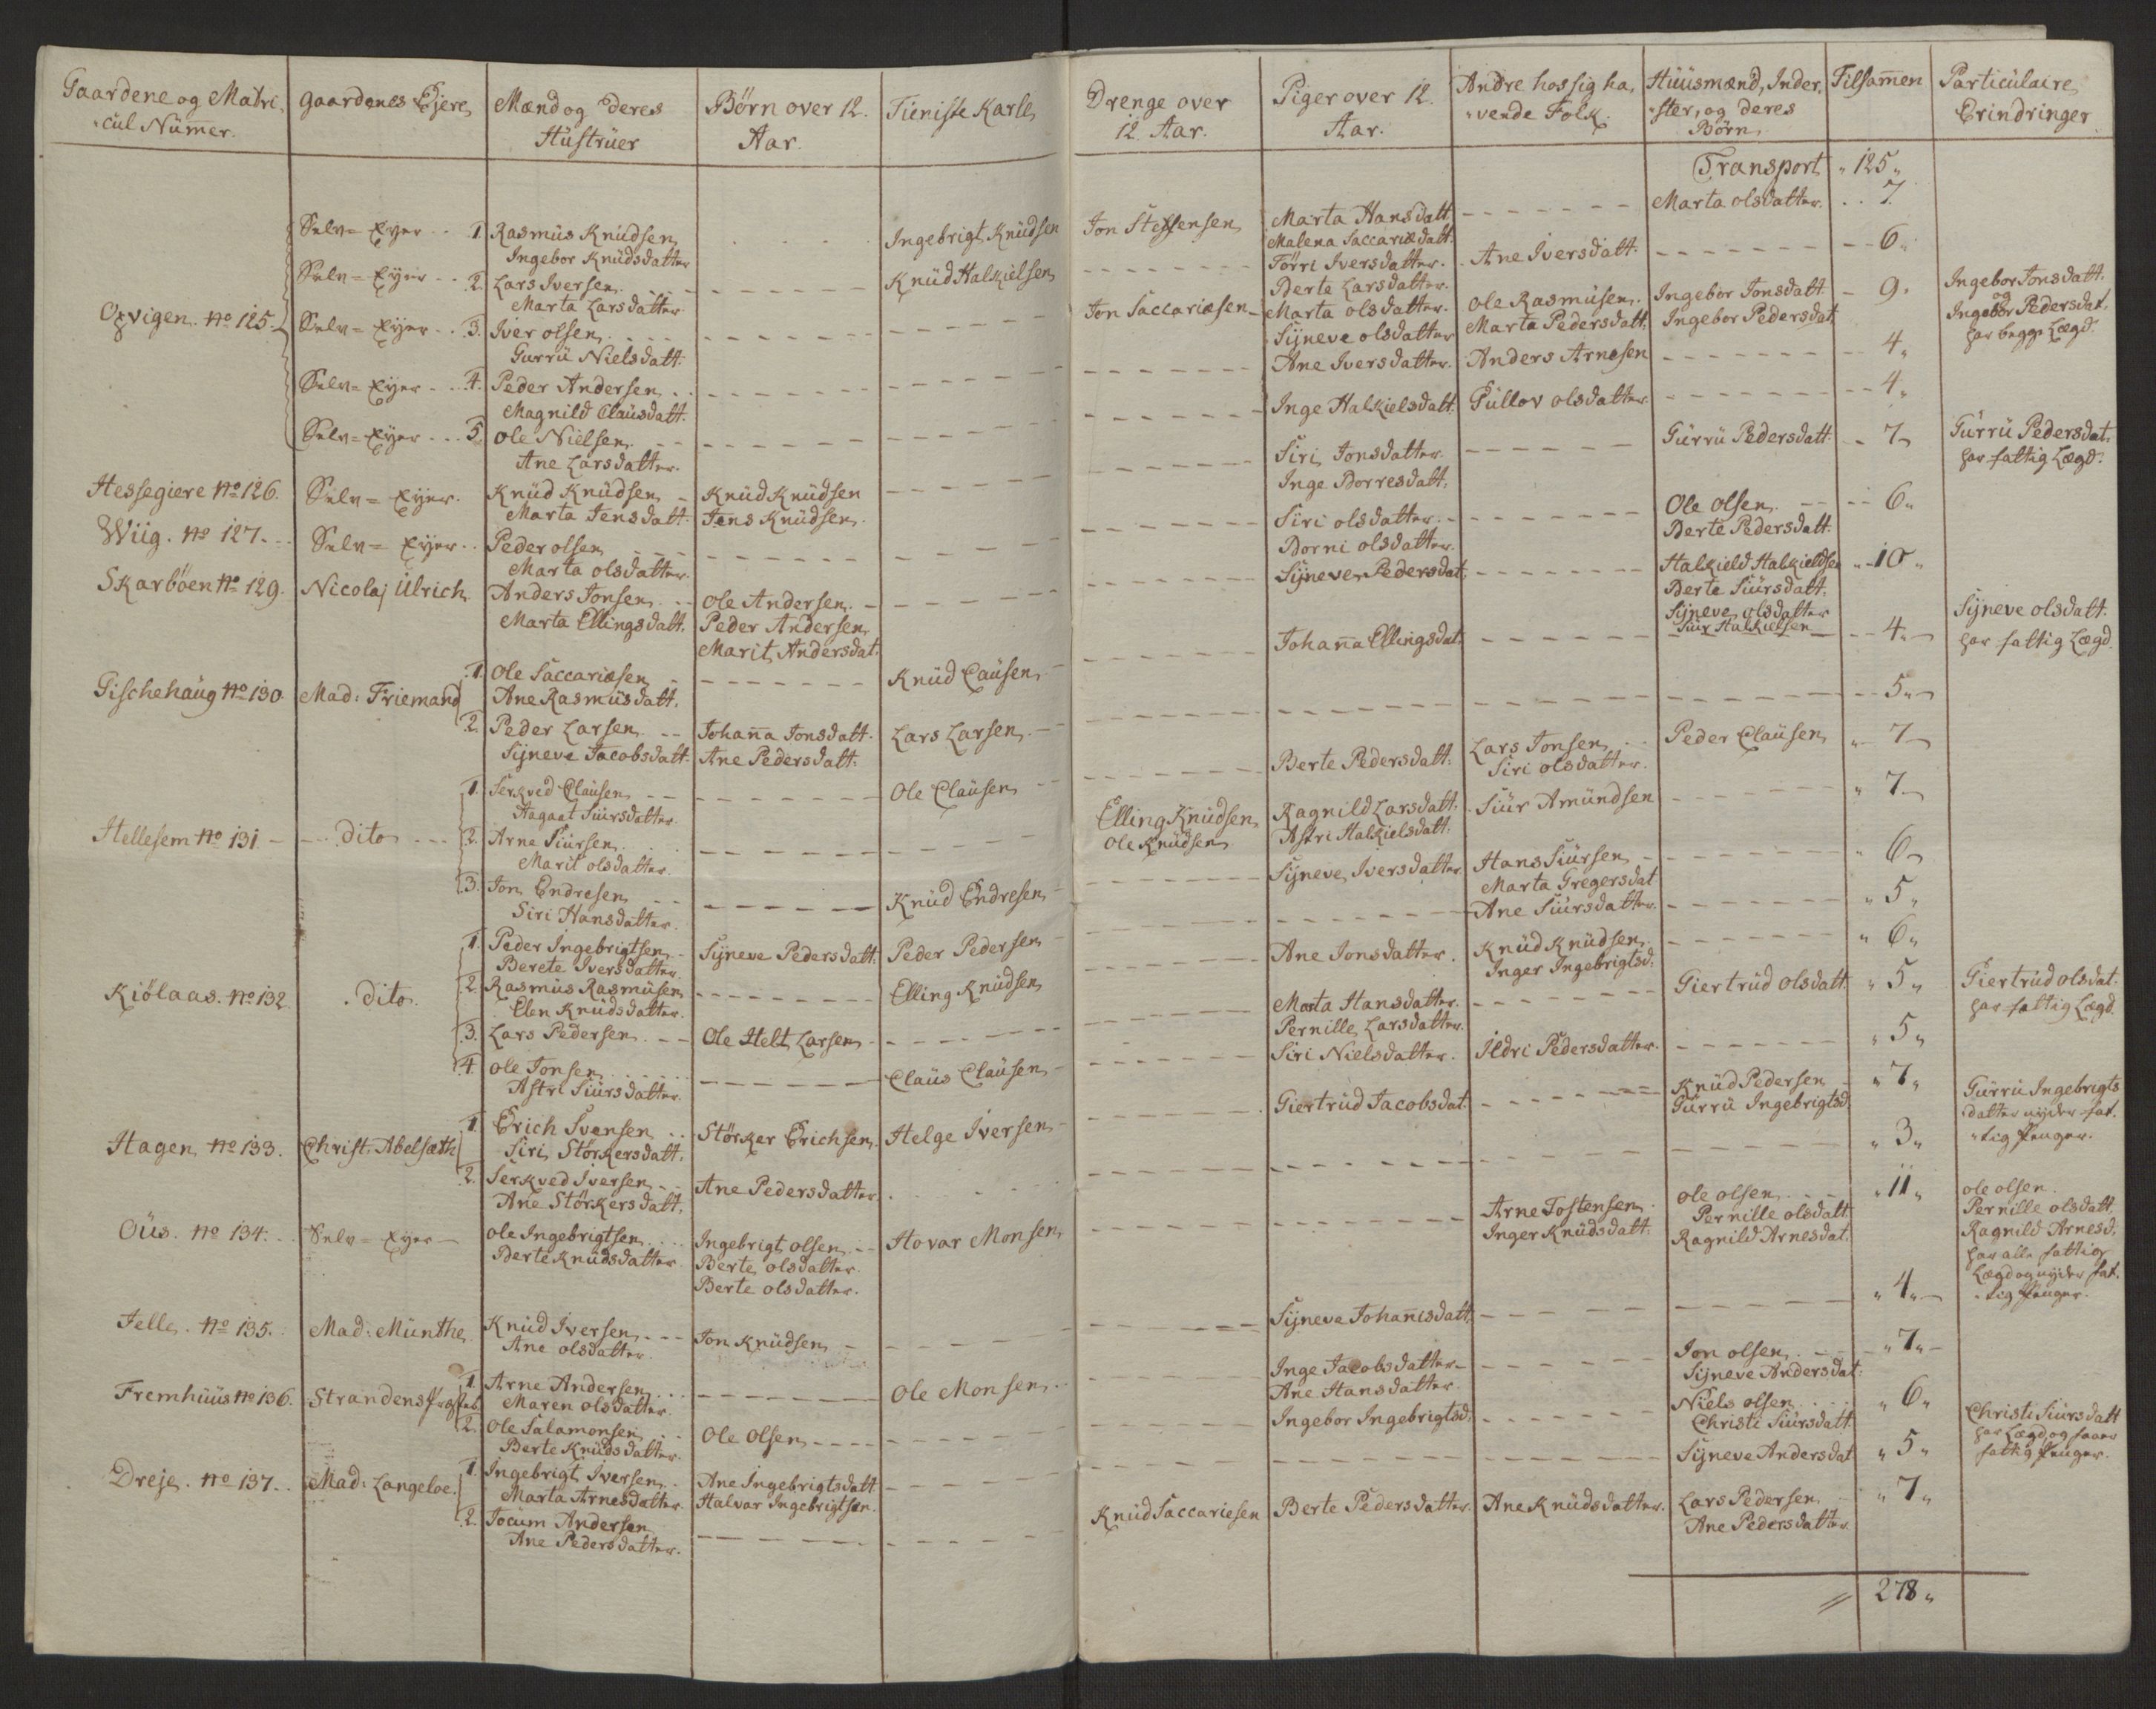 Gaardene og Matri-
cul Nummer.
Gaardenes Ejere
Mænd og deres
Hustruer
Børn over 12.
Aar.
Tieniste Karle
Drenge over
12 Aar.
Piger over 12.
Aar.
Andre hos sig ha-
vende Folk.
Huusmænd, Inder-
ster, og deres
Børn
Tilsamen
Particulaire
Erindringer
Transport " 125 "
Oxvigen No 125.
Selv=Eyer 1. Rasmus Knudsen Ingebrigt Knudsen Jon Steffensen Marta Hansdatt. Marta olsdatter. 7.
Ingebor Knudsdatter Malena Saccariædatt.
Selv=Eyer 2. Lars Iversen Knud Halkielsen Törri Iversdatter. Ane Iversdatt. 6.
Marta Larsdatter Berte Larsdatter.
Selv=Eyer 3. Iver olsen Jon Saccariæsen Marta olsdatter. Ole Rasmusen. Ingebor Jonsdatt. 9. Ingebor Jonsdatt.
Gurru Nielsdatt. Syneve olsdatter Marta Pedersdatt. Ingebor Pedersdat. og
Ingebor Pedersdat.
har begge Lægd.
Selv=Eyer 4. Peder Andersen Ane Iversdatter. Anders Arnesen 4.
Magnild Clausdatt.
Selv=Eyer 5. Ole Nielsen Inge Halkielsdatt. Gullov olsdatter 4.
Ane Larsdatter.
Hessegiere No 126. Selv=Eyer. Knud Knudsen Knud Knudsen Siri Jonsdatter. Gurru Pedersdatt. 7. Gurru Pedersdat.
Marta Jensdatt. Jens Knudsen. Inge Borresdatt. har fattig Lægd.
Wiig. No 127. Selv=Eyer. Peder olsen Siri olsdatter. Ole olsen. 6.
Marta olsdatter. Borni olsdatter. Berte Pedersdatt.
Skarbøen No 129. Nicolaj Ulrich Anders Jonsen Ole Andersen. Syneve Pedersdat. Halkield Halkieldsen 10.
Marta Ellingsdatt. Peder Andersen Berte Siursdatt.
Marit Andersdat. Syneve olsdatter Syneve olsdatt.
Siur Halkielsen har fattig Lægd.
Gischehaug No 130. Mad: Friemand 1. Ole Saccariæsen Knud Causen Johanna Ellingsdat. 4.
Ane Rasmusdatt.
2. Peder Larsen Johanna Jonsdatt. Lars Larsen. 5.
Syneve Jacobsdatt. Ane Pedersdatt.
Hellesem No 131 dito 1. Serkved Clausen Ole Clausen Berte Pedersdatt. Lars Jonsen Peder Clausen 7.
Aagaat Siursdatter. Siri olsdatter.
2. Arne Siursen Elling Knudsen Ragnild Larsdatt. Siur Amundsen 7.
Marit olsdatter. Ole Knudsen Astri Halkielsdatt.
3. Jon Endresen Knud Endresen Syneve Iversdatter Hans Siursen 6.
Siri Hansdatter. Marta Gregersdat
Kiölaas. No 132 dito. 1. Peder Ingebrigtsen Syneve Pedersdatt. Peder Pedersen Ane Siursdatter. 5.
Berete Iversdatter.
2. Rasmus Rasmusen Elling Knudsen Ane Jonsdatter. Knud Knudsen 6.
Elen Knudsdatter. Inger Ingebrigtsd:
3. Lars Pedersen Ole Helt Larsen Marta Hansdatter. Giertrud olsdatt. 5. Giertrud olsdat.
Pernille Larsdatter. har fattig Lægd.
4. Ole Jonsen Claus Clausen Siri Nielsdatter. Ildri Pedersdatter. 5.
Astri Siursdatter.
Hagen No 133. Christ. Abelsæth 1. Erich Svensen Störker Erichsen Helge Iversen Giertrud Jacobsdat. Knud Pedersen 7. Gurru Ingebrigts
Siri Störkersdatt. Gurru Ingebrigtsd. datter nyder fat-
tig Penger.
2. Serkved Iversen Ane Pedersdatter 3.
Ane Störkersdatt.
Ous. No 134. Selv=Eyer Ole Ingebrigtsen Ingebrigt olsen Hovar Monsen Arne Tostensen ole olsen 11. ole olsen.
Berte Knudsdatter Berte olsdatter. Inger Knudsdatt. Pernille olsdatt. Pernille olsdatt.
Berte olsdatter. Ragnild Arnesdat. Ragnild Arnesd.
har alle fattig
Lægd og nyder fat-
tig Penger.
Jelle. No 135. Mad: Munthe Knud Iversen Jon Knudsen Syneve Johannisdatt. 4.
Ane olsdatter.
Fremhuus No 136. Strandens 1. Arne Andersen Ole Monsen. Inge Jacobsdatter Jon olsen 7.
Maren olsdatter. Ane Hansdatter. Syneve Andersdat.
2. Ole Salamonsen Ole Olsen Ingebor Ingebrigtsd. Niels olsen 6. Christi Siursdatt
Berte Knudsdatter. Christi Siursdatt. har Lægd og faaer
fattig Penger.
Dreje. No 137. Mad: Langeloe. 1. Ingebrigt Iversen Ane Ingebrigtsdatt Syneve Andersdat 5.
Marta Arnesdatter Halvar Ingebrigtsen.
2. Jocum Andersen Knud Saccariesen Berte Pedersdatter. Ane Knudsdatter. Lars Pedersen 7.
Ane Pedersdatter. Ane Pedersdatter
278 "